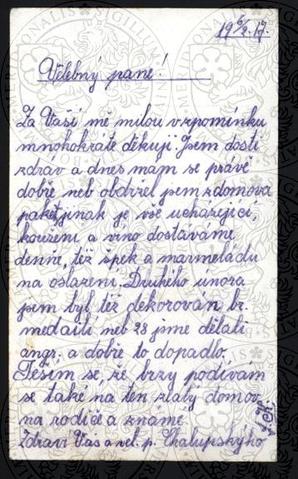 19 6/2. 17.
Velebný pane!
Za Vaši mě milou vzpomínku
mnohokráte děkuji. Jsem dosti
zdráv a dnes mám se právě
dobře neb obdržel jsem z domova
paket, jinak je vše ucházející,
kouření a víno dostáváme
denně, též špek a marmeládu
na oslazení. Druhého února
jsem byl též dekorován br.
medailí neb 28 jsme dělali
angr. a dobře to dopadlo.
Těším se, že brzy podívám
se také na ten zlatý domov
na rodiče a známé.
Zdraví Vás a vel. p. Chalupského